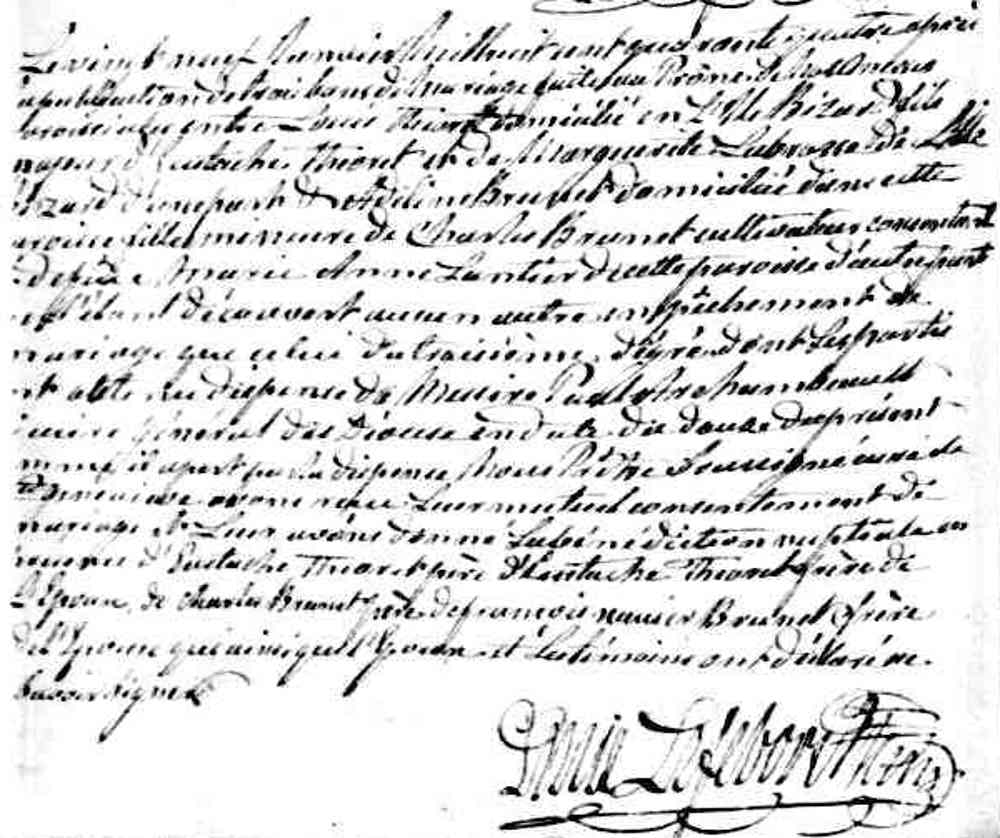 Le vingt neuf Janvier mil huit cent quarante quatre après
la publication de trois bans de mariage faite au Prône de nos Messes
paroissiales entre Louis Theoret domicilié en L'Isle Bizard fils
majeur d'Eustache Theoret et de Marguerite Labrosse de L'Isle
Bizard d'une part & Adeline Brunet domiciliée dans cette
paroisse fille mineure de Charles Brunet cultivateur consentant
& defunte Marie Anne Lantier de cette paroisse d'autre part
ne s'étant découvert aucun autre empêchement de
mariage que celui du troisième dégré dont les partis
ont obtenu dispense de Messire
vicaire général du Diocèse en date du douze du présent
comme il apert par la dispense Nous Prêtre Soussigné curé de
S. Genevieve avons reçu Leur mutuel consentement de
mariage et Leur avons donné La bénédiction nuptiale en
présence d'Eustache Theoret père d'Eustache Theoret frère de
L'Epoux, de Charles Brunet père de francois xavier Brunet frère
de L'Epouse qui ainsi que l'Epoux et Les témoins ont déclaré ne
savoir signer
Louis Lefebvre Ptre